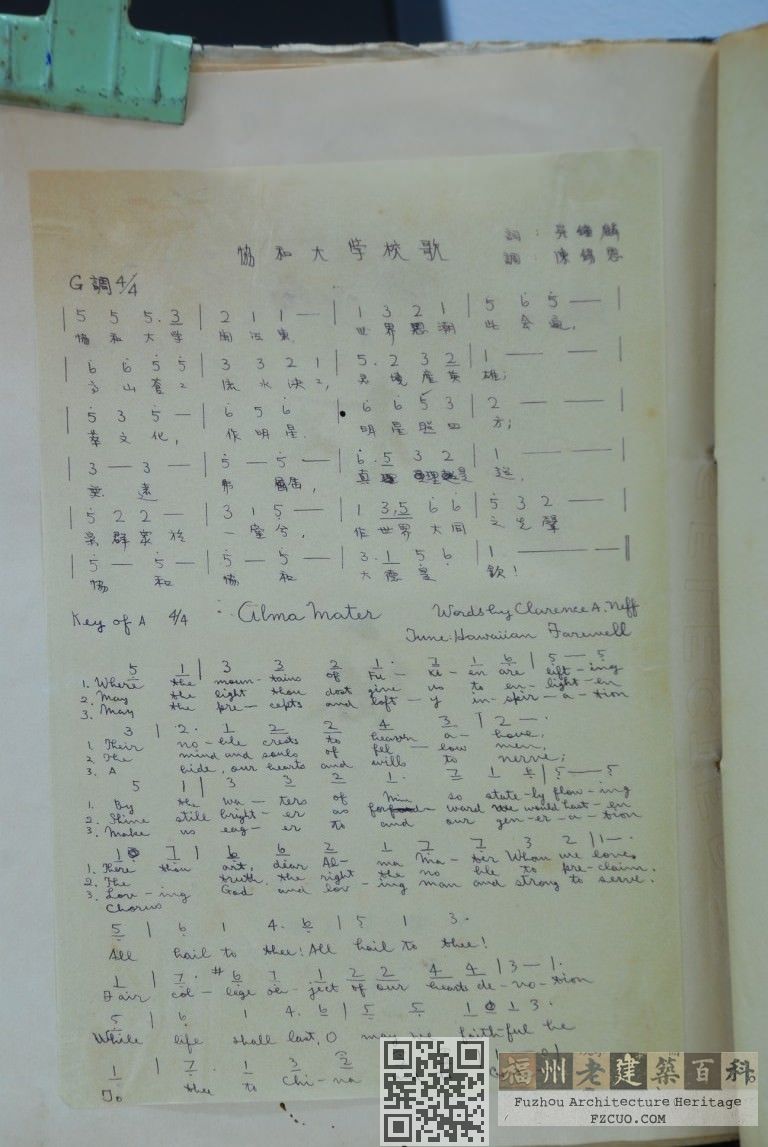 協和大学校歌
詞：吳鍾麟
調：陳錫恩
G調4/4
| 5 5 5. 3 | 2 1 1 — | 1 3 2 1 | 5 6 5 — |
協和大学 閩江東 世界思潮
| 6 6 5 5 | 3 3 2 1 | 5. 2 3 2 | 1 — — |
山蒼々 流水泱々, 產英雄;
| 5 3 5 — | 6 5 6 | 6 6 5 3 | 2 — — |
萃文化, 作明星. 明星照四方;
| 3 — 3 — | 5 — 5 — | 6. 5 3 2 | 1 — — |
真理
| 5 2 2 — | 3 1 5 — | 1 3.5 6 6 | 5 3 2 — |
集群眾於 一堂兮, 作世界大同之先聲
| 5 — 5 — | 5 — 5 — | 3. 1 5 6 | 1 — — — ‖
協和 協和 大德是欽!
Key of A 4/4 Alma Mater Words by Clarence A. Neff
Tune: Hawaiian Farewell
5 1 | 3 3 2 1. 7 1 6 | 5 — 5
1. Where the moun-tains of Fu-ki-en are lift-ing
2. May the light thou dost give us to en-light-en
3. May the pre-cepts and loft-y in-spir-a-tion
3 | 2. 1 2 2 4 3 | 2 — .
1. Their no-ble crests to heaven a-bove,
2. The mind and souls of fel-low men,
3. A bide, our hearts and wills to nerve;
5 1 | 3 3 3 2 1. 7 1 6 | 5 — 5
1. By the wa-ters of Min so state-ly flow-ing
2. Shine still bright-er as for-ward we would hast-en
3. Make us eag-er to and our gen-er-a-tion
1 7 | 6 6 2 1 7 7 3 2 | 1 — .
1. There thou art, dear Al-ma Ma-ter Whom we love,
2. The truth, the right the no ble to pre-claim.
3. Lov-ing God and lov-ing man and strong to serve.
Chorus
5 | 6 1 4. 6 | 5 1 3.
All hail to thee! All hail to thee!
1 | 7. #6 7 1 2 2 4 4 | 3 — 1.
Fair col-lege ob-ject of our hearts de-vo-tion
5 | 6 1 4. 6 | 5 5 1 1 3.
While life shall last, O may we faithful be
1 | 7. 1 3 2
To thee to Chi-na
福州老建築百科
Fuzhou Architecture Heritage
FZCUO.COM